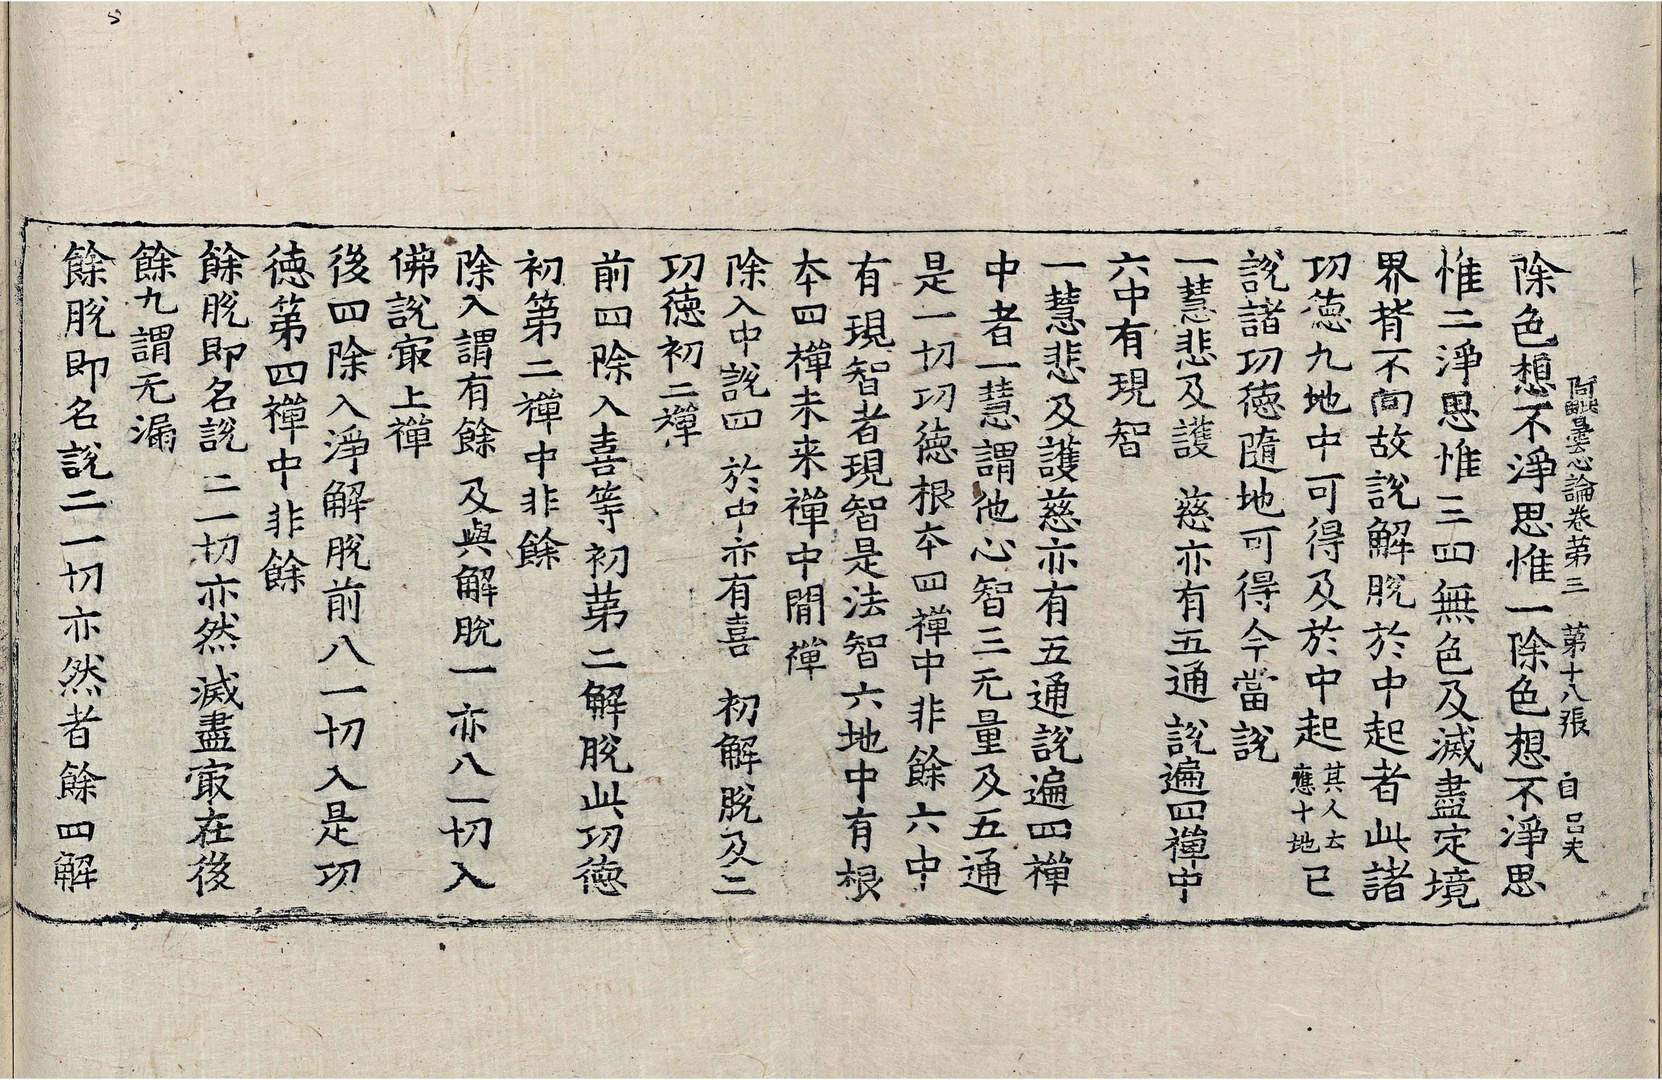 阿毗曇心論卷第三 第十八張 自 呂夫
除色想不淨思惟一除色想不淨思
惟二淨思惟三四無色及滅盡定境
界背不向故說解脫於中起者此諸
功德九地中可得及於中起其人云應十地已
說諸功德隨地可得今當說
一慧悲及護 慈亦有五通 說遍四禪中
六中有現智
一慧悲及護慈亦有五通說遍四禪
中者一慧謂他心智三无量及五通
是一切功德根本四禪中非餘六中
有現智者現智是法智六地中有根
本四禪未来禪中間禪
除入中說四 於中亦有喜 初解脫及二
功德初二禪
前四除入喜等初第二解脫此功德
初第二禪中非餘
除入謂有餘 及與解脫一 亦八一切入
佛說㝡上禪
後四除入淨解脫前八一切入是功
德第四禪中非餘
餘脫即名說 二一切亦然 滅盡㝡在後
餘九謂无漏
餘脫即名說二一切亦然者餘四解